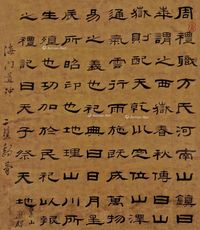 周禮職方氏河南山鎮曰
華謂之西嶽春秋傳曰山
嶽則配天乾坤定位山澤
通氣雲行雨施既成萬物
易之義也祀典曰日月星
辰所昭仰也地理山川所
生殖也功加於民祀以報
之禮記曰天子祭天地
海門